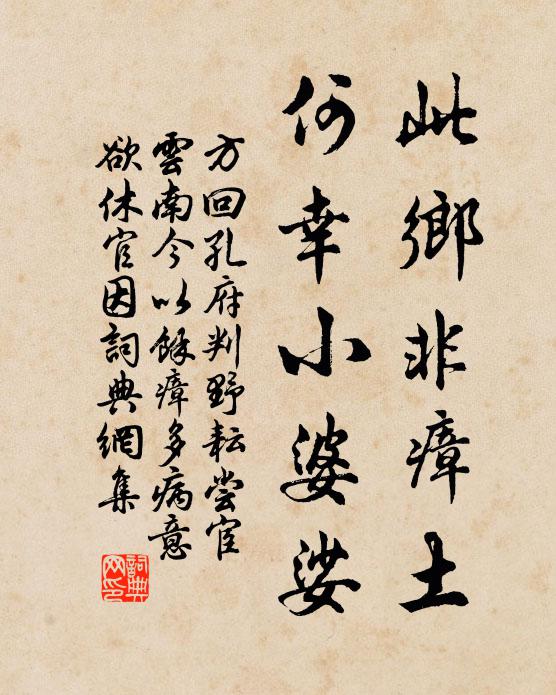 此鄉非瘴土
何幸小婆娑
方回孔府判野耘嘗宦
雲南今以餘瘴多病意
欲休官因詞典網集
詞典網印